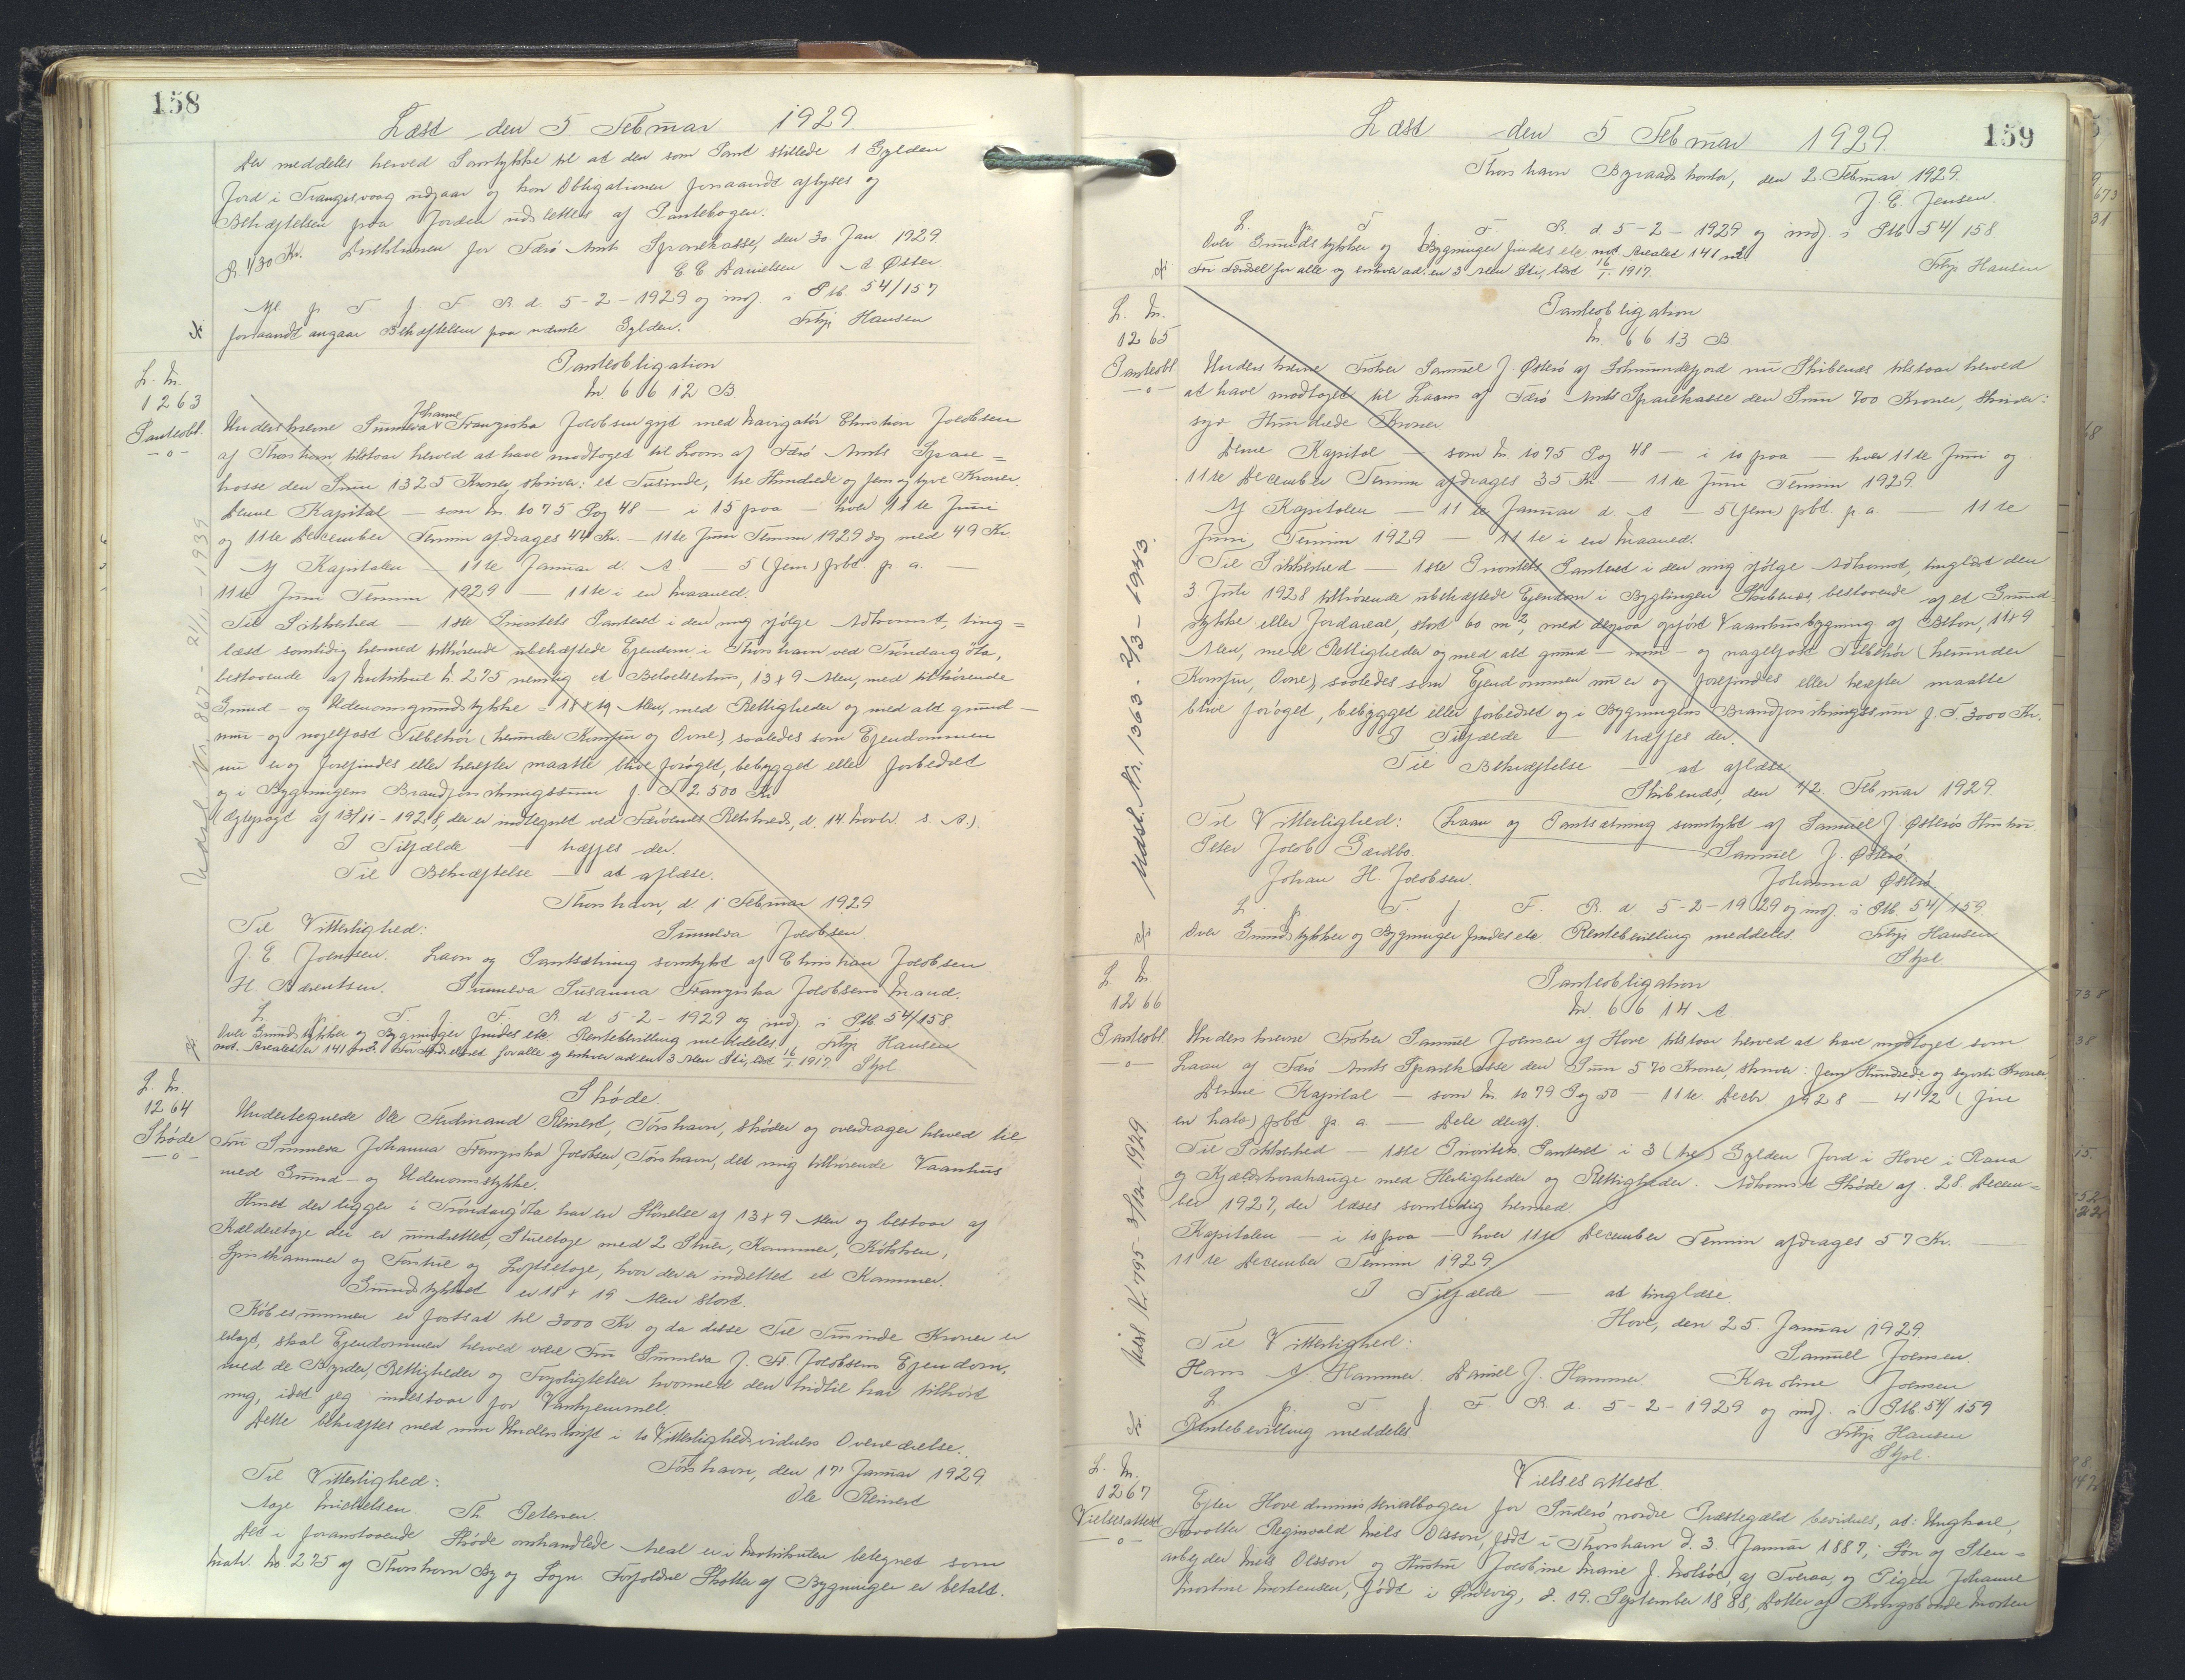 158
Læst den 5 Februar 1929
Der meddeles herved Samtykke til at den som Pant stillede 1 Gylden
Jord i Trangisvaag udgaar og hon Obligationen foraandt aflyses og
Behæftelsen paa Jorden udslettes af Pantebogen.
R. 430 Kr. Direktionen for Færø Amts Sparekasse, den 30 Jan. 1929.
C C Danielsen A Øster
Afl p. T. f. F. R. d. 5-2-1929 og indf. i Ptb. 54/157
foraandt angaar Behæftelsen paa nævnte Gylden. Frtlje Hansen
L. Nr.
1263
Panteobl.
—o—
Panteobligation
Nr 6612 B
Johanne
Underskrevne Sunneva Franziska Jacobsen gift med Navigatør Christian Jacobsen
af Thorshavn tilstaar herved at have modtaget til Laans af Færø Amts Spare=
kasse den Sum 1325 Kroner, skriver: et Tusinde, tre Hundrede og fem og tyve Kroner.
Denne Kapital — som Nr. 1075 Pag 48 — i 15 paa — hver 11te Juni
og 11te December Termin afdrages 44 Kr. — 11te Juni Termin 1929 dog med 49 Kr
Af Kapitalen — 11te Januar d. A — 5 (fem) pCt. p. a. —
11te Juni Termin 1929 — 11te i en Maaned.
Til Sikkerhed — 1ste Prioritets Panteret i den mig ifølge Adkomst, ting=
læst samtidig hermed tilhørende ubehæftede Ejendom i Thorshavn ved Tróndargøta,
bestaaende af Matrikul Nr. 275 nemlig et Beboelseshus, 13 x 9 Alen, med tilhørende
Grund- og Udenomsgrundstykke = 18 x 19 Alen, med Rettigheder og med alt grund-
mur- og nagelfast Tilbehør (herunder Komfur og Ovne), saaledes som Ejendommen
nu er og forefindes eller herefter maatte blive forøget, bebygget eller forbedret
og i Bygningens Brandforsikringssum f. T 2500 Kr
(Ægtepagt af 13/11-1928, der er indtegnet ved Færøernes Retskreds, d. 14. Novbr. s. A.).
I Tilfælde — træffes der.
Til Bekræftelse — at aflæse.
Thorshavn, d. 1 Februar 1929
Til Vitterlighed: Sunneva Jacobsen.
J. E. Joensen. Laan og Pantsætning samtykt af Christian Jacobsen
H. Bærentsen. Sunneva Susanna Franziska Jacobsens Mand.
L. p. T. f. F. R. d 5-2-1929 og indf. i Ptb. 54/158.
Over Grundstykker og Bygninger findes etc. Rentebevilling meddeles. Frtlje Hansen
not. Arealet er 141 m². For Færdsel for alle og enhver ad en 3 Alen Sti, læst 16/1 1917. Stpl
Udsl Nr. 867 - 21/11 - 1939
L. Nr.
1264
Skøde
—o—
Skøde.
Undertegnede Ole Ferdinand Reinert, Tórshavn, skøder og overdrager herved til
Fru Sunneva Johanna Franziska Jacobsen, Tórshavn, det mig tilhørende Vaanhus
med Grund- og Udenomsstykke.
Huset der ligger i Tróndargøta har en Størrelse af 13 x 9 Alen og bestaar af
Kælderetage der er uindrettet, Stueetage med 2 Stuer, Kammer, Køkken,
Spisekammer og Forstue og Loftsetage, hvor der er indrettet et Kammer.
Grundstykket er 18 x 19 Alen stort.
Købesummen er fastsat til 3000 Kr og da disse Tre Tusinde Kroner er
erlagt, skal Ejendommen herved være Fru Sunneva J. Fr. Jacobsens Ejendom,
med de Byrder, Rettigheder og Forpligtelser hvormed den hidtil har tilhørt
mig, idet jeg indestaar for Vanhjemmel.
Dette bekræftes med min Underskrift i to Vitterlighedsvidners Overværelse.
Tórshavn, den 17 Januar 1929.
Til Vitterlighed: Ole Reinert
Aage Michelsen. Th. Petersen.
Det i foranstaaende Skøde omhandlede Areal er i Matrikulen betegnet som
Matr. No 275 af Thorshavn By og Sogn. Forfaldne Skatter af Bygninger er betalt.
159
Læst den 5 Februar 1929.
Thorshavn Byraadskontor, den 2. Februar 1929.
J. E. Jensen.
L. p. T. f. F. R. d. 5-2-1929 og indf. i Ptb 54/158
Over Grundstykker og Bygninger findes etc not. Arealet 141 m².
For Færdsel for alle og enhver ad en 3 Alen Sti, læst 16/1 1917. Frtlje Hansen
L. Nr.
1265
Panteobl
—o—
Panteobligation
Nr. 6613 B
Underskrevne Frøher Samuel J. Østerø af Lohmundefjord nu Skibenæs tilstaar herved
at have modtaget til Laans af Færø Amts Sparekasse den Sum 700 Kroner, skriver:
syv Hundrede Kroner
Denne Kapital — som Nr. 1075 Pag 48 — i 10 paa — hver 11te Juni og
11te December Termin afdrages 35 Kr — 11te Juni Termin 1929.
Af Kapitalen — 11te Januar d. A — 5 (fem) pCt. p a. — 11te
Juni Termin 1929 — 11te i en Maaned.
Til Sikkerhed — 1ste Prioritets Panteret i den mig ifølge Adkomst, tinglæst den
3 Juli 1928 tilhørende ubehæftede Ejendom i Bygningen Skibenæs bestaaende af et Grund-
stykke eller Jordareal, stort 60 m², med derpaa opført Vaanhusbygning af Beton, 11 x 9
Alen, med Rettigheder og med alt grund- mur- og nagelfast Tilbehør (herunder
Komfur, Ovne), saaledes som Ejendommen nu er og forefindes eller herefter maatte
blive forøget, bebygget eller forbedret og i Bygningens Brandforsikringssum f. T. 3000 Kr.
I Tilfælde — træffes der.
Til Bekræftelse — at aflæse
Skibenæs, den 1/2. Februar 1929.
Til Vitterlighed: Laan og Pantsætning samtykt af Samuel J. Østerøs Hustru.
Peter Jacob Gærdbo. Samuel J. Østerø.
Johan H. Jacobsen. Johanna Østerø
L. p. T. f. F. R. d. 5-2-1929 og indf. i Ptb. 54/159.
Over Grundstykker og Bygninger findes etc. Rentebevilling meddeles. Frtlje Hansen
Stpl.
Udsl. Nr. 1363 - 2/3 - 1943.
L. Nr.
1266
Panteobl.
—o—
Panteobligation
Nr. 6614 A.
Underskrevne Frøher Samuel Joensen af Hove tilstaar herved at have modtaget som
Laan af Færø Amts Sparekasse den Sum 570 Kroner, skriver: fem Hundrede og syvti Kroner.
Denne Kapital — som Nr. 1079 Pag 50 — 11te. Decbr. 1928 — 4 1/2 (fire
en halv) pCt p. a. — Dele deraf.
Til Sikkerhed — 1ste Prioritets Panteret i 3 (tre) Gylden Jord i Hove i Rana
og Kjaldshorahauge med Herligheder og Rettigheder. Adkomst Skøde af 28. Decem=
ber 1927, der læses samtidig hermed.
Kapitalen — i 10 paa — hver 11te December Termin afdrages 57 Kr. —
11te December Termin 1929
I Tilfælde — at tinglæse.
Hove, den 25. Januar 1929.
Til Vitterlighed: Samuel Joensen.
Hans A. Hammer. Daniel J. Hammer. Karoline Joensen
L. p. T. f. F. R. d. 5-2-1929 og indf. i Ptb. 54/159
Rentebevilling meddeles Frtlje Hansen
Stpl.
L. Nr.
1267
Vielsesattest
—o—
Vielsesattest.
Efter Hovedministerialbogen for Suderø nordre Præstegæld bevidnes, at: Ungkarl,
Reginvald Niels Olsson, født i Thorshavn d. 3. Januar 1887, Søn af Sten=
arbejder Niels Olsson og Hustru Jacobine Marie f. Nolsøe, af Tveraa, og Pigen Johanne
Mortine Mortensen, født i Ørdevig, d. 19. September 1888, Datter af Kongsbonde Morten